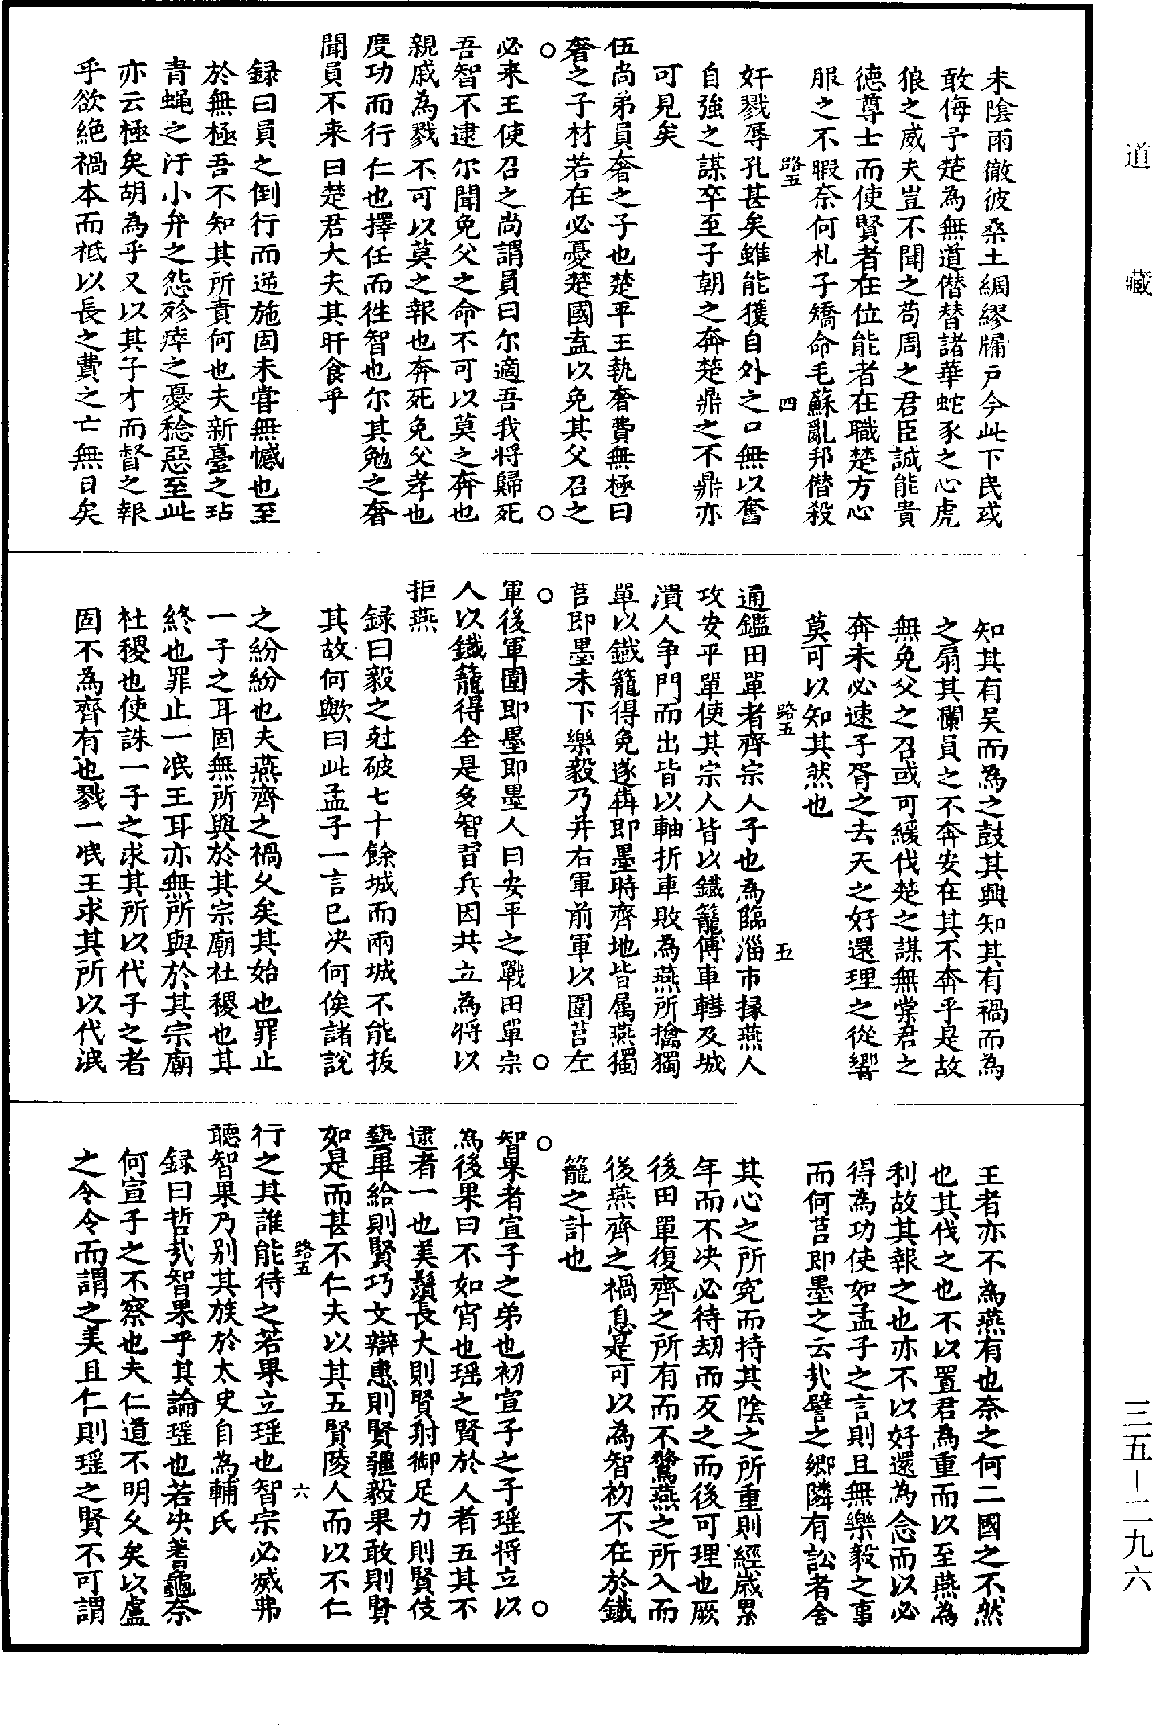 道藏
未陰雨徹彼桑土綢繆牖户今此下民或
敢侮予楚為無道僣替諸華蛇豕之心虎
狼之威夫豈不聞之苟周之君臣誠能貴
德尊士而使賢者在位能者在職楚方心
服之不暇奈何札子矯命毛蘇亂邦僣殺
路五 四
奸戮辱孔甚矣雖能獲自外之口無以奮
自強之謀卒至子朝之奔楚鼎之不鼎亦
可見矣
伍尚弟員奢之子也楚平王執奢費無極曰
奢之子材若在必憂楚國盍以免其父召之
○ ○
必来王使召之尚謂員曰尔適吾我將歸死
吾智不逮尔聞免父之命不可以莫之奔也
親戚為戮不可以莫之報也奔死免父孝也
度功而行仁也擇任而徃智也尔其勉之奢
聞員不来曰楚君大夫其旰食乎
録曰員之倒行而逆施固未嘗無憾也至
於無極吾不知其所責何也夫新臺之玷
青蝇之汙小弁之怨殄瘁之憂稔惡至此
亦云極矣胡為乎又以其子才而督之報
乎欲絶禍本而祗以長之費之亡無日矣
知其有吴而為之鼓其興知其有禍而為
之扇其欄員之不奔安在其不奔乎是故
無免父之召或可緩伐楚之謀無棠君之
奔未必速子胥之去天之好還理之從響
莫可以知其然也
路五 五
通鑑田單者齊宗人子也為臨淄市掾燕人
攻安平單使其宗人皆以鐵籠傅車轊及城
潰人争門而出皆以軸折車敗為燕所擒獨
單以鐵籠得免遂犇即墨時齊地皆属燕獨
莒即墨未下樂毅乃并右軍前軍以圍莒左
○ ○
軍後軍圍即墨即墨人曰安平之戰田單宗
人以鐵籠得全是多智習兵因共立為將以
拒燕
録曰毅之尅破七十餘城而兩城不能拔
其故何歟曰此孟子一言已决何俟諸說
之紛紛也夫燕齊之禍久矣其始也罪止
一子之耳固無所與於其宗廟社稷也其
終也罪止一㤙王耳亦無所與於其宗廟
社稷也使誅一子之求其所以代子之者
固不為齊有也戮一泯王求其所以代泯
王者亦不為燕有也奈之何二國之不然
也其伐之也不以置君為重而以至燕為
利故其報之也亦不以好還為念而以必
得為功使如孟子之言則且無樂毅之事
而何莒即墨之云㢤譬之鄉隣有訟者舍
其心之所究而持其陰之所重則經歲累
年而不决必待劫而反之而後可理也厥
後田單復齊之所有而不驚燕之所入而
後燕齊之禍息是可以為智初不在於鐵
籠之計也
○ ○
智果者宣子之弟也初宣子之子瑶將立以
為後果曰不如宵也瑶之賢於人者五其不
逮者一也美鬚長大則賢射御足力則賢伎
藝畢給則賢巧文辯惠則賢疆毅果敢則賢
如是而甚不仁夫以其五賢陵人而以不仁
路五 六
行之其誰能待之若果立瑶也智宗必滅弗
聽智果乃别其族於太史自為輔氏
録曰哲㢤智果乎其論瑶也若决蓍龜奈
何宣子之不察也夫仁道不明久矣以盧
之令令而謂之美且仁則瑶之賢不可謂
三五－二九六